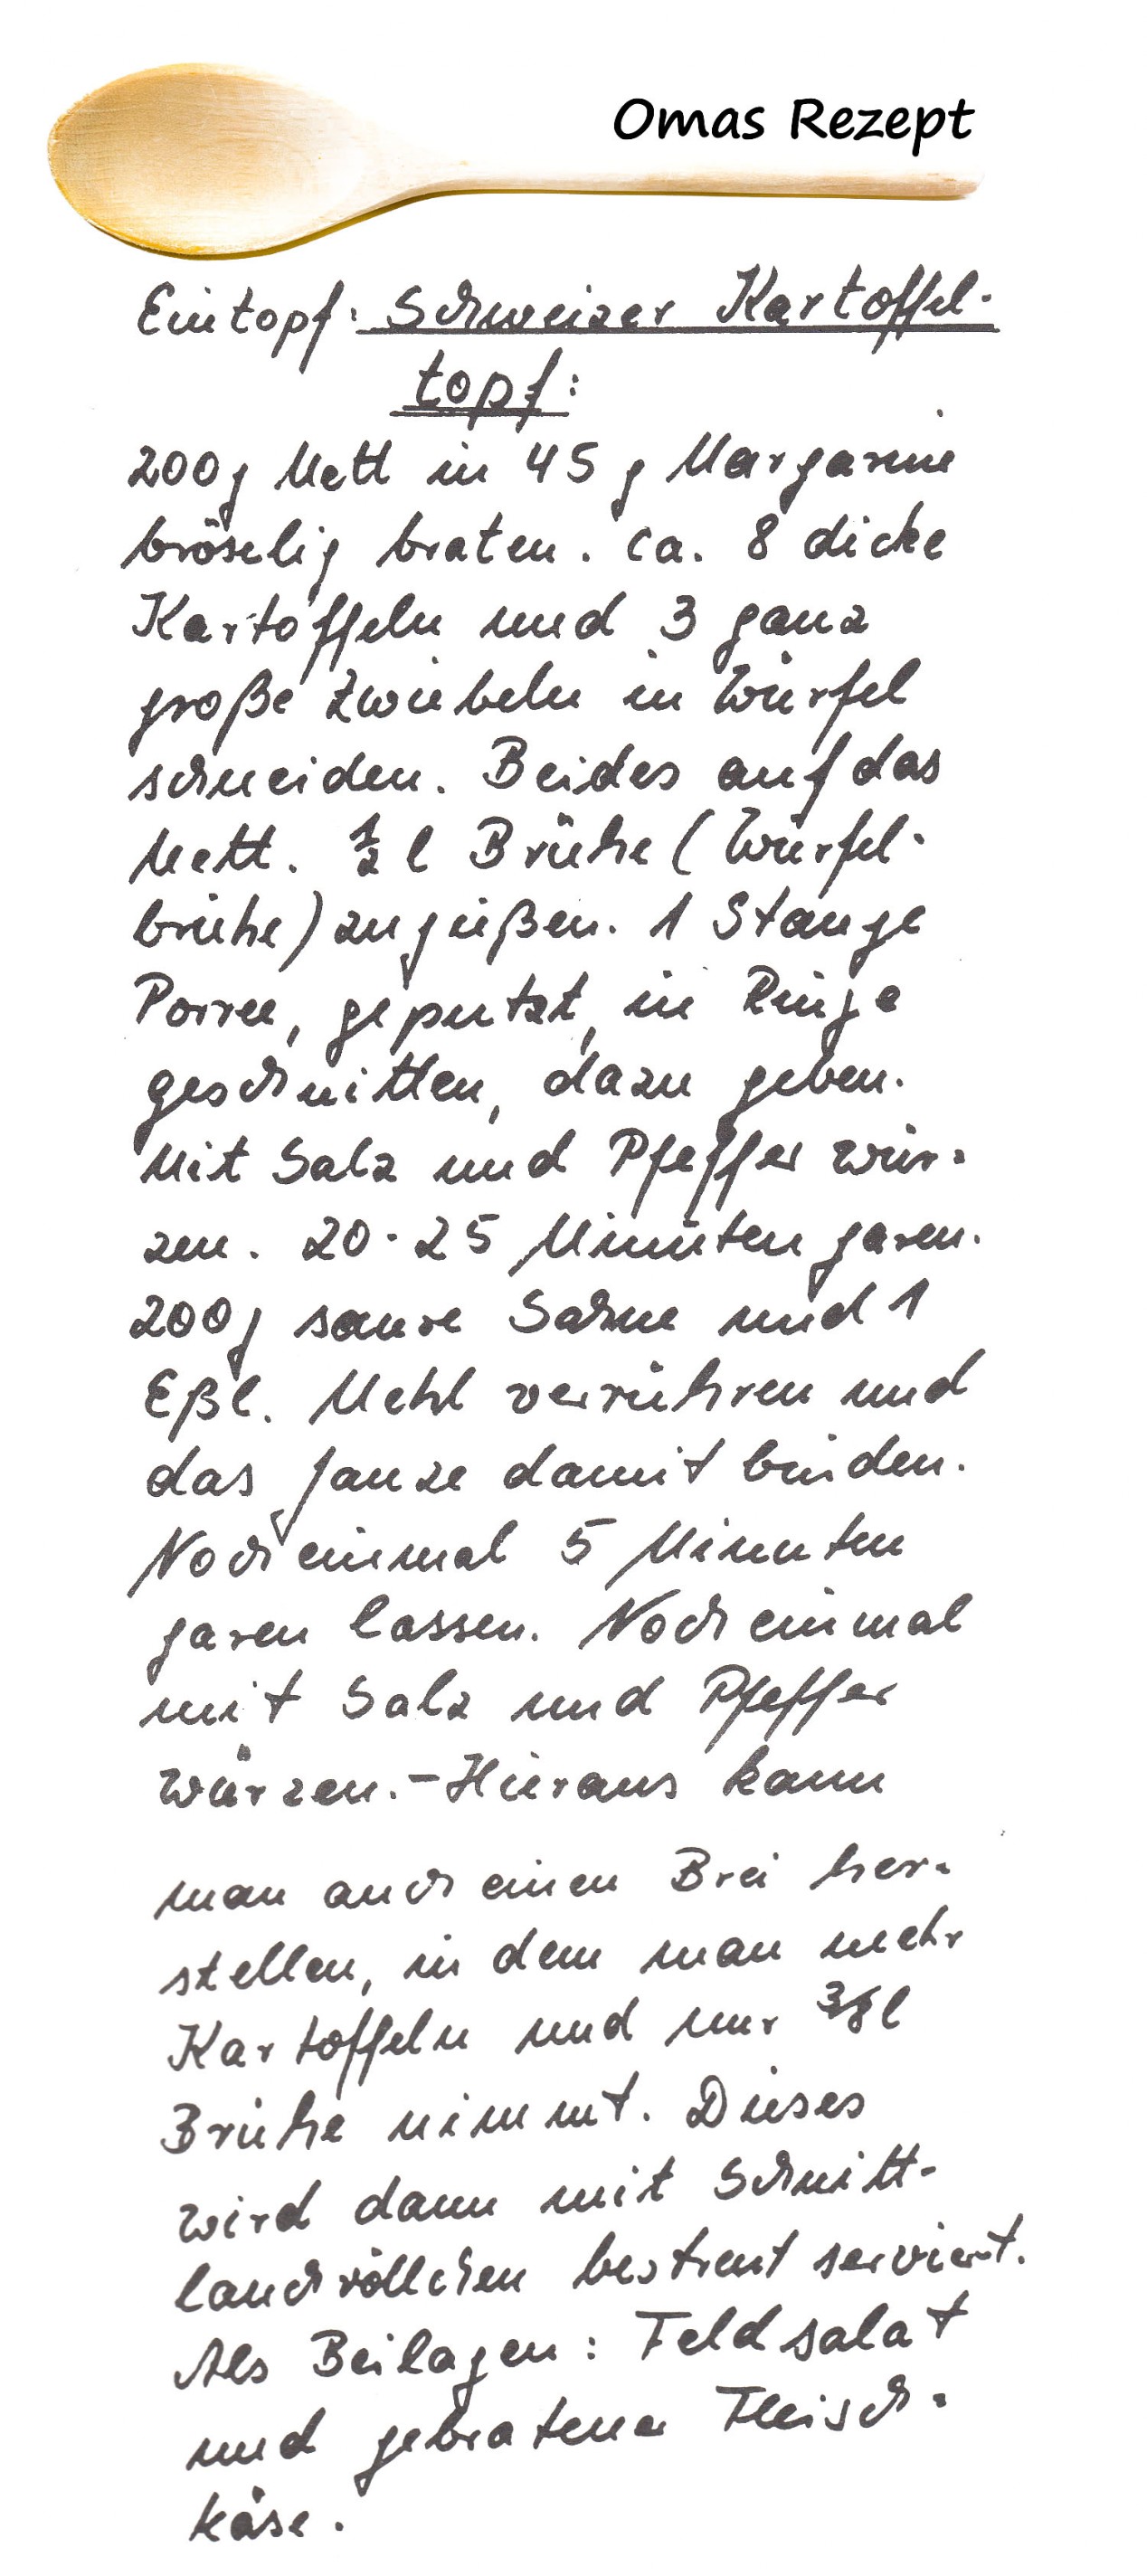 Omas Rezept
Eintopf: Schweizer Kartoffel-
topf:
200g Mett in 45 g Margarine
bröselig braten. ca. 8 dicke
Kartoffeln und 3 ganz
große Zwiebeln in Würfel
schneiden. Beides auf das
Mett. ½ l Brühe (Würfel-
brühe) zugießen. 1 Stange
Porree, geputzt, in Ringe
geschnitten, dazu geben.
Mit Salz und Pfeffer wür-
zen. 20-25 Minuten garen.
200g saure Sahne und 1
Eßl. Mehl verrühren und
das ganze damit binden.
Noch einmal 5 Minuten
garen lassen. Noch einmal
mit Salz und Pfeffer
würzen. - Hieraus kann
man auch einen Brei her-
stellen, in dem man mehr
Kartoffeln und nur 3/8 l
Brühe nimmt. Dieses
wird dann mit Schnitt-
lauchröllchen bestreut serviert.
Als Beilagen: Feldsalat
und gebratener Fleisch-
käse.